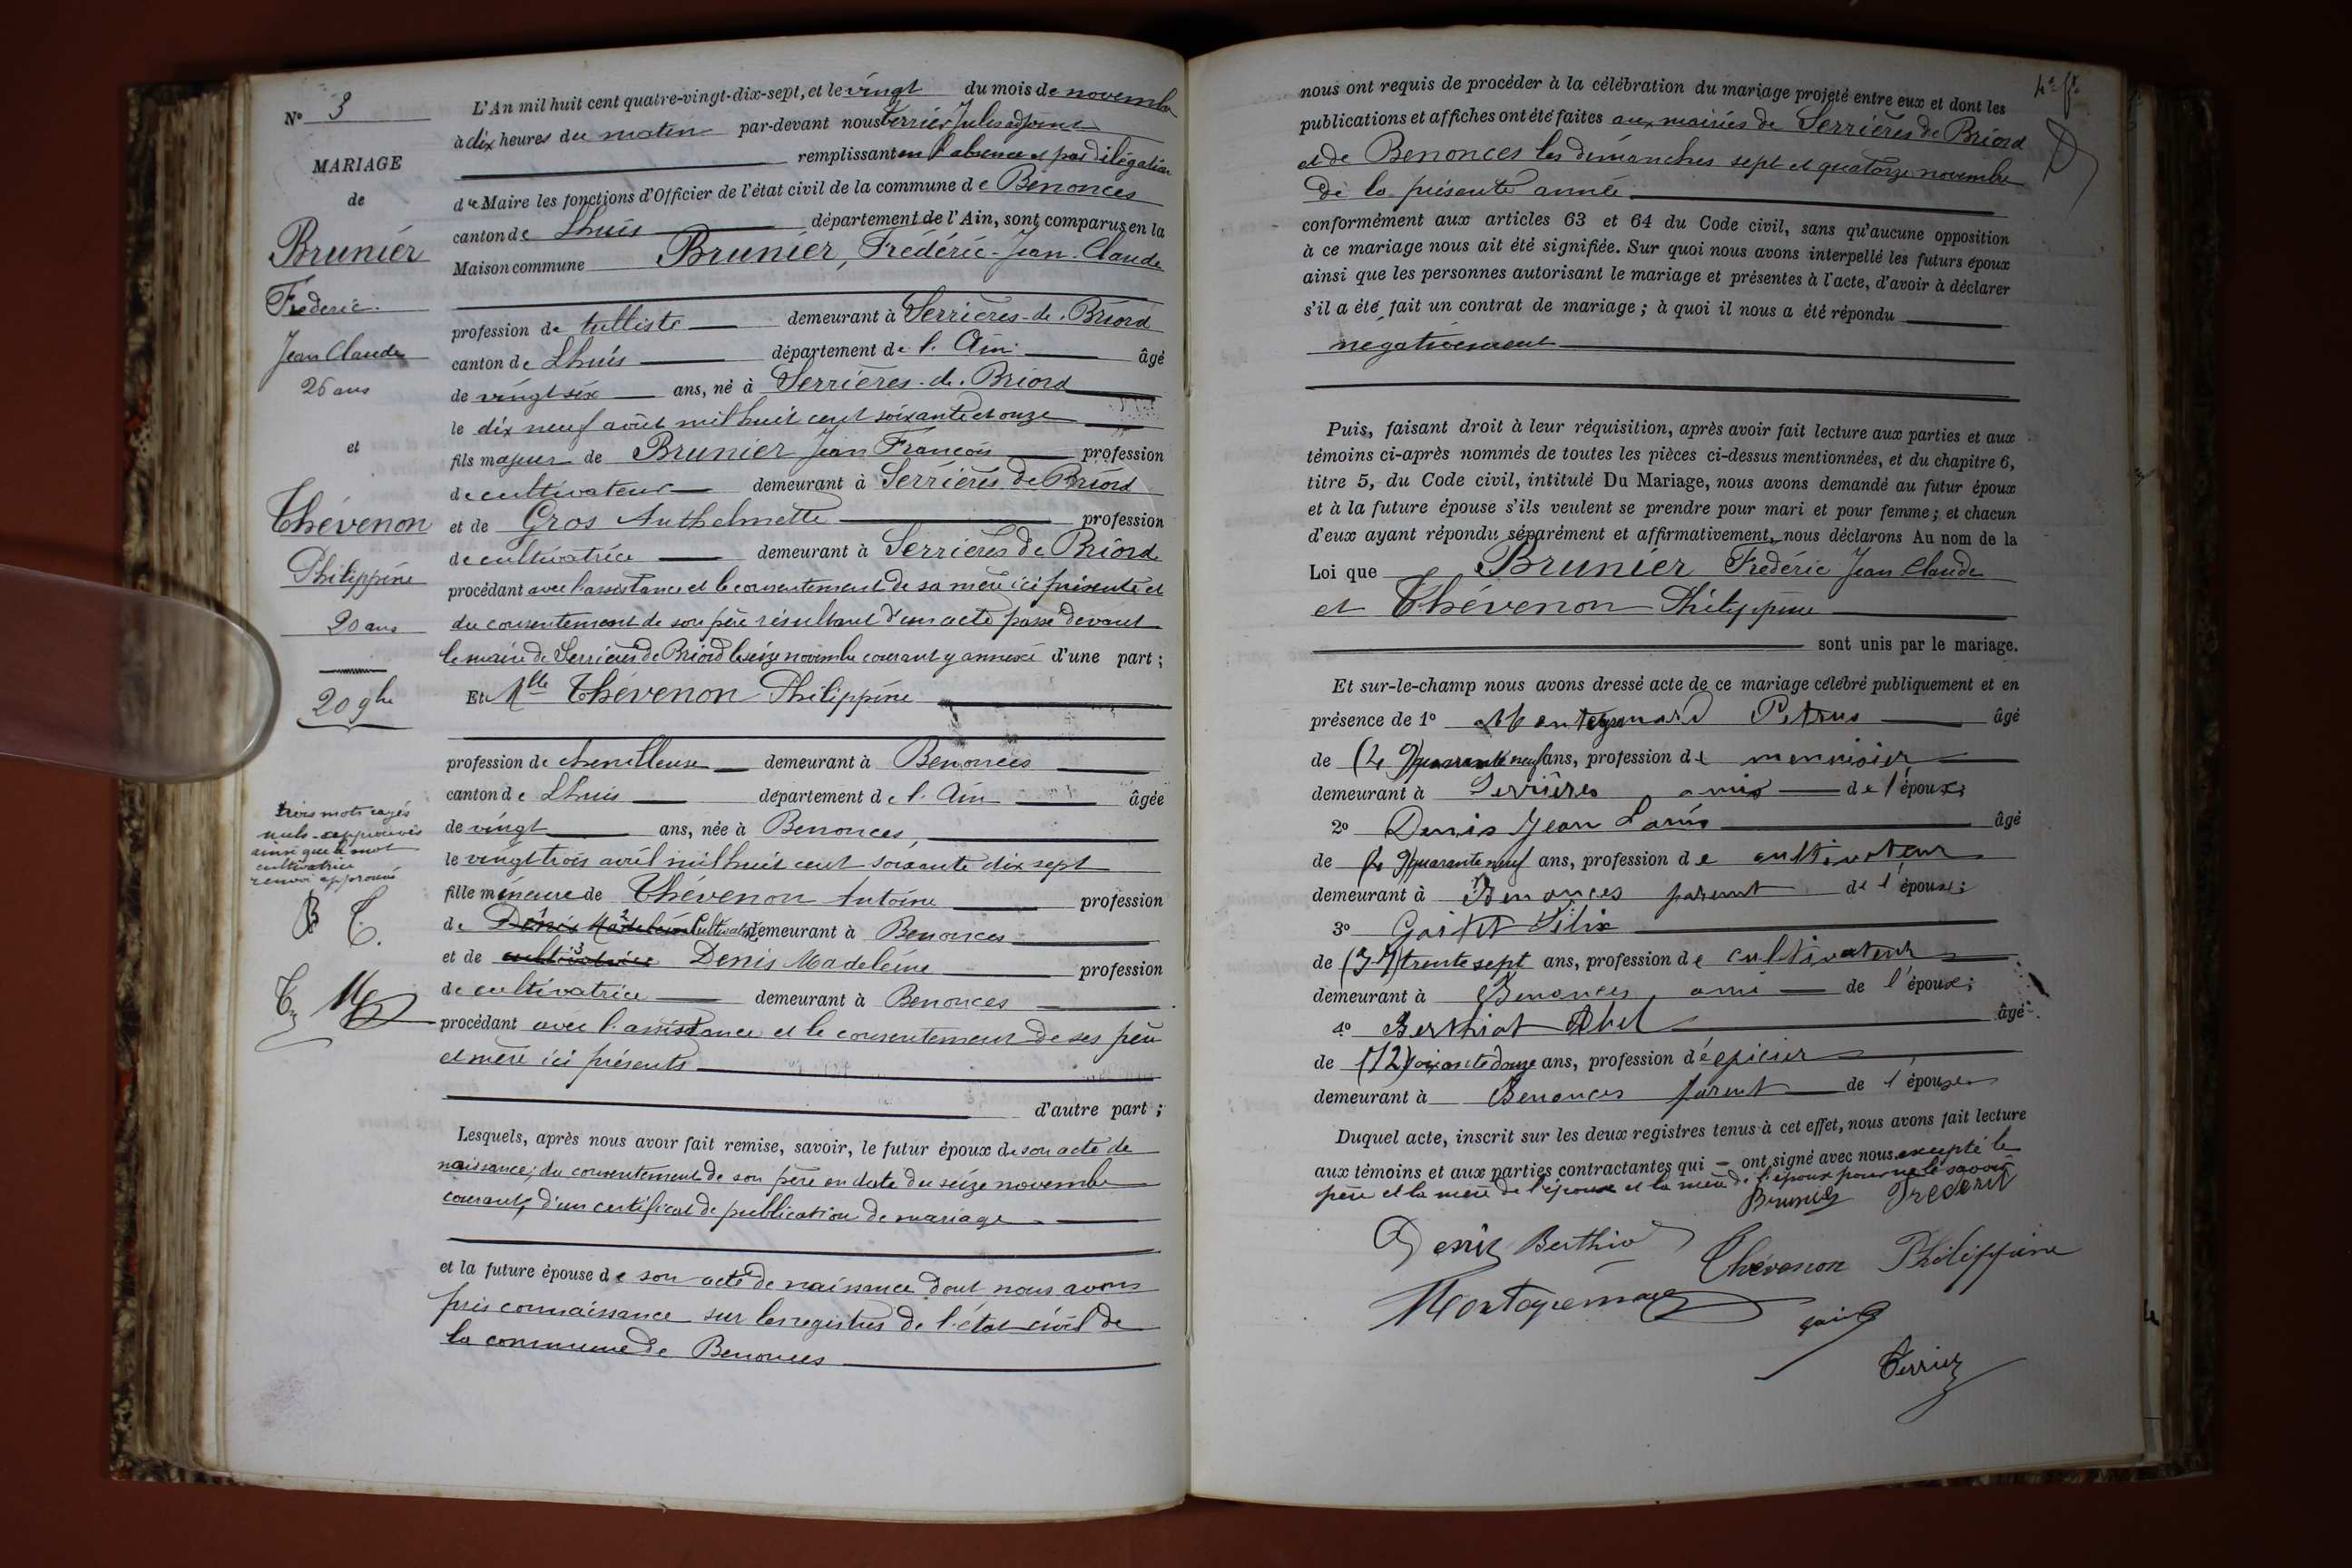 N° 3
MARIAGE
de
Brunier
Frédéric
Jean Claude
26 ans
et
Thévenon
Philippine
20 ans
20 9bre
trois mots rayés
nuls approuvés
ainsi que le mot
cultivatrice
renvoi approuvé
B T.
L'An mil huit cent quatre-vingt-dix-sept, et le vingt du mois de novembre
à dix heures du matin par-devant nous Terrier Jules adjoint
remplissant en l'absence et par délégation
du Maire les fonctions d'Officier de l'état civil de la commune de Benonces
canton de Lhuis département de l'Ain, sont comparus en la
Maison commune Brunier, Frédéric-Jean-Claude
profession de tulliste demeurant à Serrières-de-Briord
canton de Lhuis département de l'Ain âgé
de vingt six ans, né à Serrières-de-Briord
le dix neuf août mil huit cent soixante et onze
fils majeur de Brunier Jean François profession
de cultivateur demeurant à Serrières de Briord
et de Gros Anthelmette profession
de cultivatrice demeurant à Serrières de Briord
procédant avec l'assistance et le consentement de sa mère ici présente et
du consentement de son père résultant d'un acte passé devant
le maire de Serrières de Briord le seize novembre courant y annexé d'une part ;
Et Mlle Thévenon Philippine
profession de chenilleuse demeurant à Benonces
canton de Lhuis département de l'Ain âgée
de vingt ans, née à Benonces,
le vingt trois avril mil huit cent soixante dix sept
fille mineure de Thévenon Antoine profession
de Denis Madeleine Cultivateur demeurant à Benonces
et de cultivatrice Denis Madeleine profession
de cultivatrice demeurant à Benonces
procédant avec l'assistance et le consentement de ses père
et mère ici présents
d'autre part ;
Lesquels, après nous avoir fait remise, savoir, le futur époux de son acte de
naissance; du consentement de son père en date du seize novembre
courant, d'un certificat de publication de mariage
et la future épouse de son acte de naissance dont nous avons
pris connaissance sur les registres de l'état civil de
la commune de Benonces
nous ont requis de procéder à la célébration du mariage projeté entre eux et dont les
publications et affiches ont été faites aux mairies de Serrières de Briord
et de Benonces les dimanches sept et quatorze novembre
de la présente année
conformément aux articles 63 et 64 du Code civil, sans qu'aucune opposition
à ce mariage nous ait été signifiée. Sur quoi nous avons interpellé les futurs époux
ainsi que les personnes autorisant le mariage et présentes à l'acte, d'avoir à déclarer
s'il a été fait un contrat de mariage ; à quoi il nous a été répondu
négativement
Puis, faisant droit à leur réquisition, après avoir fait lecture aux parties et aux
témoins ci-après nommés de toutes les pièces ci-dessus mentionnées, et du chapitre 6,
titre 5, du Code civil, intitulé Du Mariage, nous avons demandé au futur époux
et à la future épouse s'ils veulent se prendre pour mari et pour femme ; et chacun
d'eux ayant répondu séparément et affirmativement, nous déclarons Au nom de la
Loi que Brunier Frédéric Jean Claude
et Thévenon Philippine
sont unis par le mariage.
Et sur-le-champ nous avons dressé acte de ce mariage célébré publiquement et en
présence de 1° Montagnard Pétrus âgé
de (49) quarante neuf ans, profession de mennisier
demeurant à Serrières amis de l'époux;
2° Denis Jean Larin âgé
de (49) quarante neuf ans, profession de cultivateur
demeurant à Benonces parent de l'épouse;
3° Goitet Félix
de (37) trente sept ans, profession de cultivateur
demeurant à Benonces ami de l'époux;
4° Berthiot Abel âgé
de (72) soixante douze ans, profession d'épicier
demeurant à Benonces parent de l'épouse
Duquel acte, inscrit sur les deux registres tenus à cet effet, nous avons fait lecture
aux témoins et aux parties contractantes qui ont signé avec nous excepté le
père et la mère de l'épouse et la mère de l'époux pour ne le savoir
Brunier Fréderic
Denis Berthio
Thévenon Philippine
Terrier